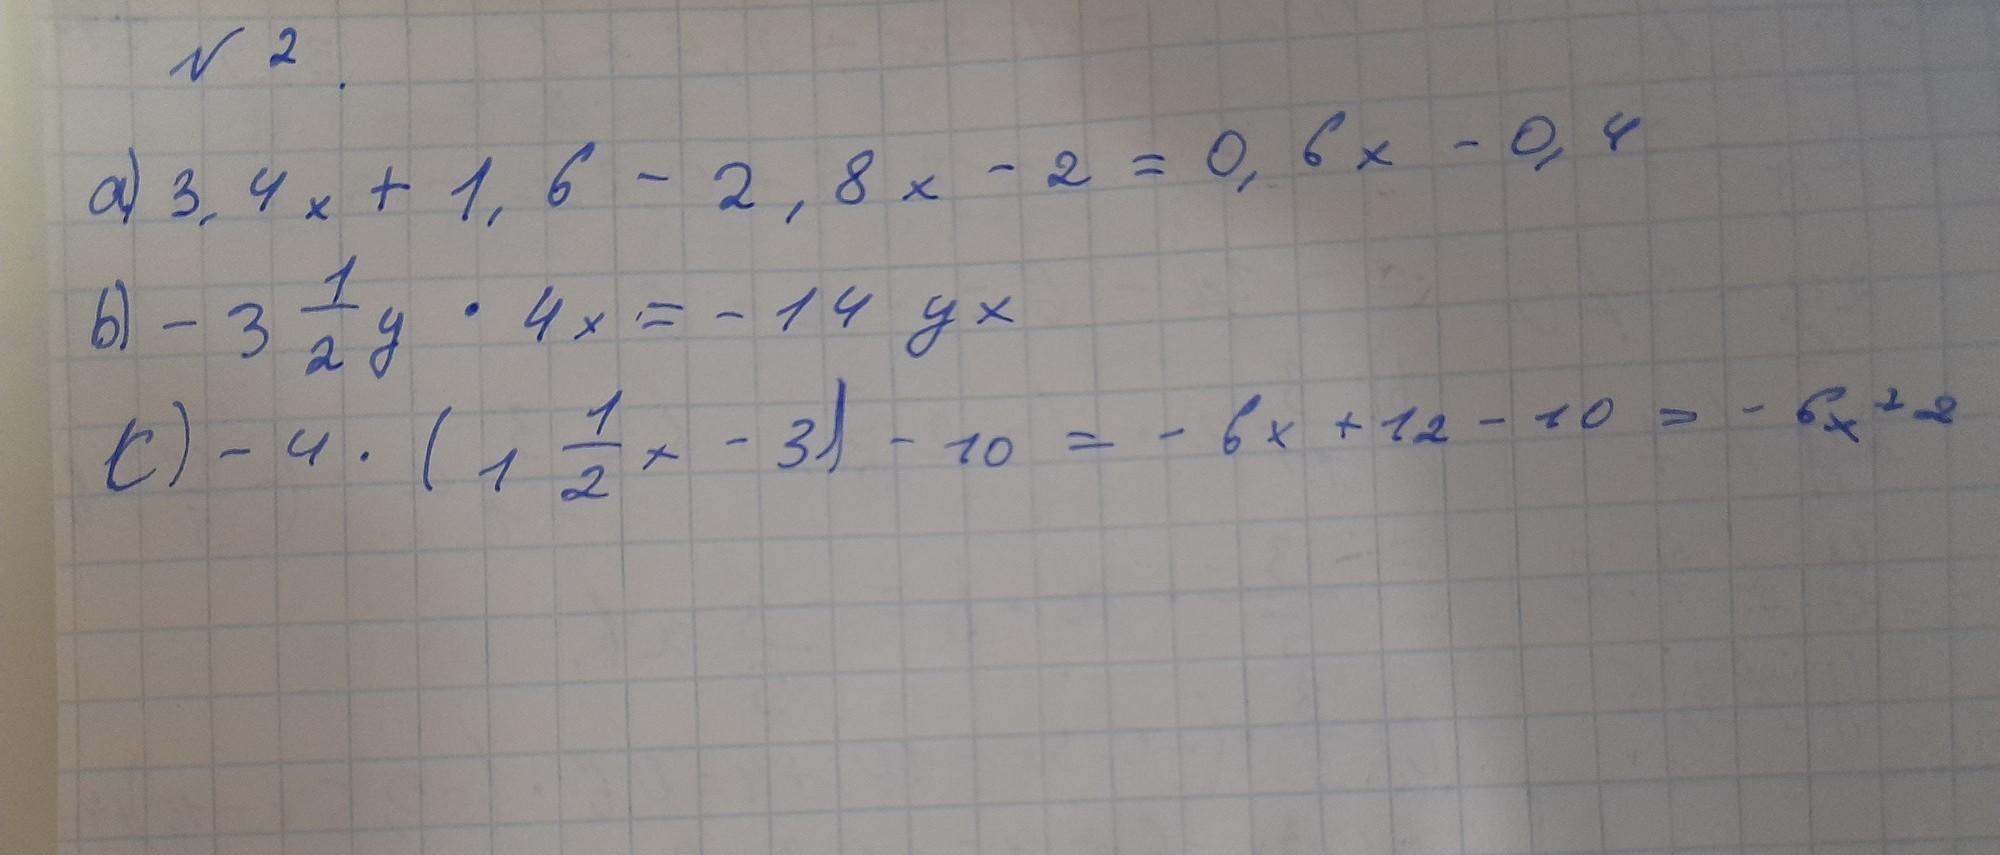 № 2.
a) 3,4x + 1,6 - 2,8x - 2 = 0,6x - 0,4
b) - 3 1/2 y · 4x = - 14 yx
c) - 4 · (1 1/2 x - 3) - 10 = - 6x + 12 - 10 = - 6x + 2